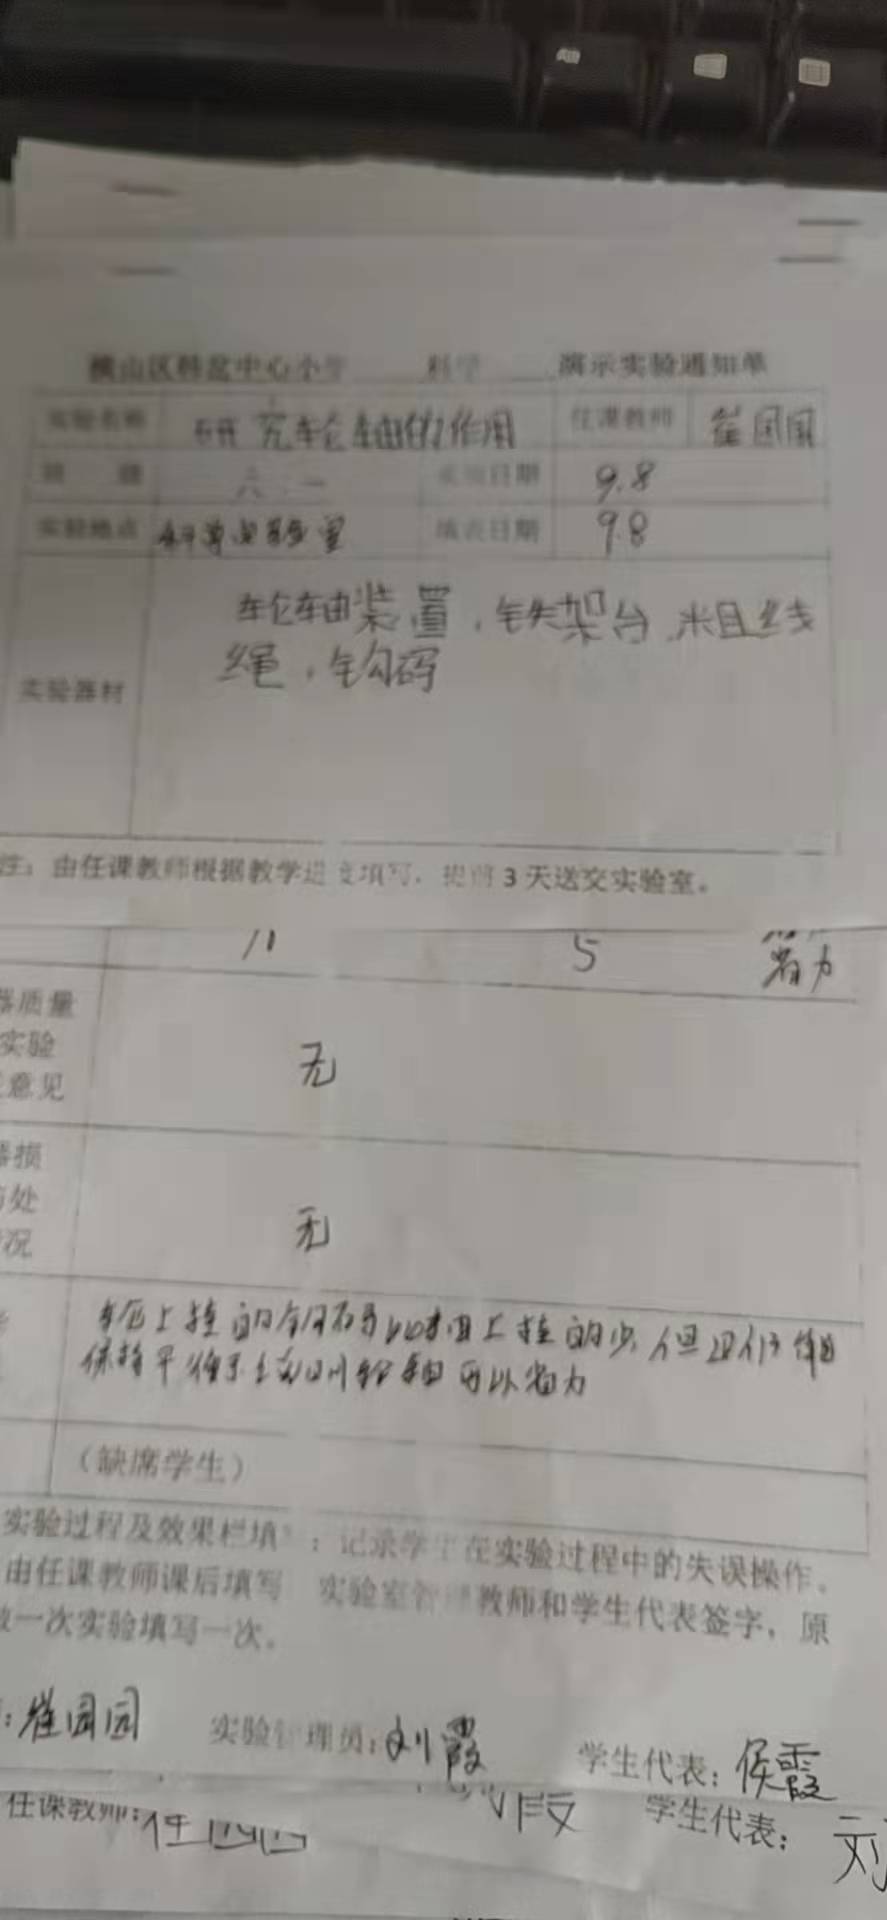 横山区韩岔中心小学 科学 演示实验通知单
实验名称 研究轮轴的作用 任课教师 崔园园
班 级 六.一 实验日期 9.8
实验地点 科学实验室 填表日期 9.8
实验器材 轮轴装置,铁架台,粗线
绳,钩码
注:由任课教师根据教学进度填写,提前3天送交实验室。
11 5 省力
器质量
实验
意见
无
器损
处
况
无
轮上挂的钩码比轴上挂的少,但仍能
保持平衡 轮轴可以省力
(缺席学生)
实验过程及效果栏填 :记录学生在实验过程中的失误操作。
由任课教师课后填写 实验室管理教师和学生代表签字,原
做一次实验填写一次。
:崔园园 实验管理员:刘霞 学生代表:侯霞
任课教师: 学生代表:刘